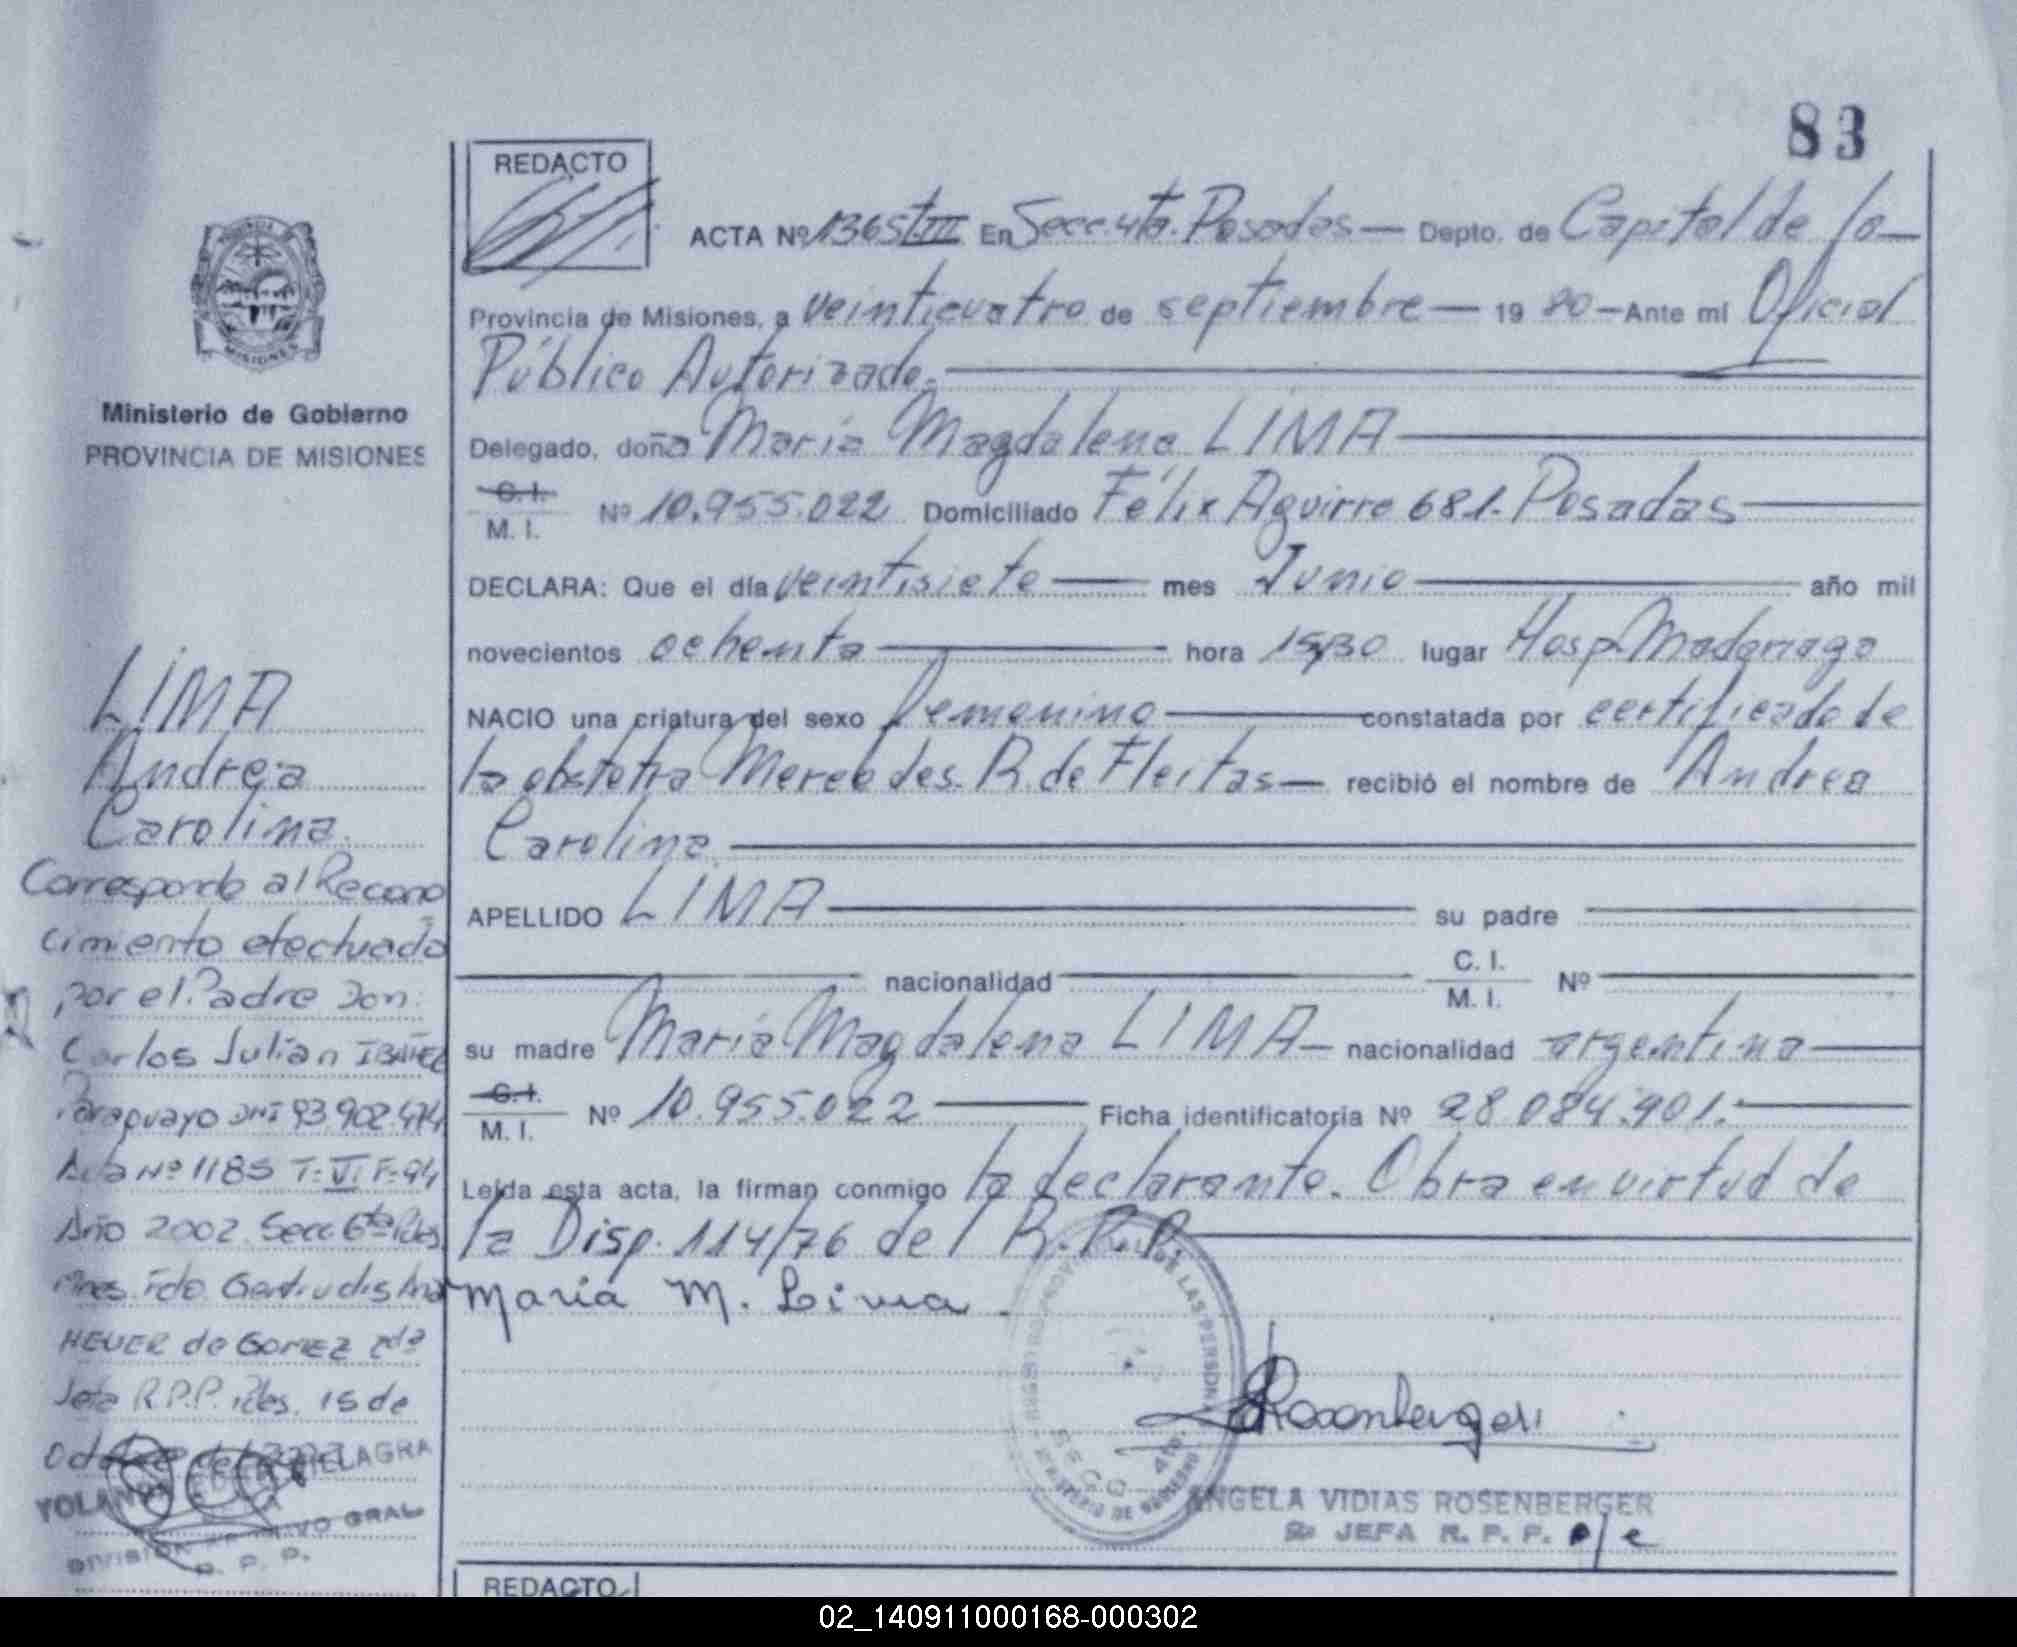 83
REDACTO
ACTA Nº 1365 T III En Secc. 4ta. Posadas — Depto. de Capital de la
Provincia de Misiones, a veinticuatro de septiembre — 19 80 — Ante mí Oficial
Público Autorizado.
Delegado, doña María Magdalena LIMA
C. I.
M. I. Nº 10.955.022 Domiciliado Félix Aguirre 681. Posadas
DECLARA: Que el día veintisiete mes Junio año mil
novecientos ochenta hora 15,30 lugar Hosp. Madariaga
NACIO una criatura del sexo femenino constatada por certificado de
la obstetra Mercedes R. de Fleitas — recibió el nombre de Andrea
Carolina.
APELLIDO LIMA su padre
nacionalidad C. I.
M. I. Nº
su madre María Magdalena LIMA — nacionalidad argentina
C. I.
M. I. Nº 10.955.022 Ficha identificatoria Nº 28.084.901.
Leída esta acta, la firman conmigo la declarante. Obra en virtud de
la Disp. 114/76 del R.P.P.
María M. Lima.
Rosenberger
ANGELA VIDIAS ROSENBERGER
JEFA R. P. P. a/c
MISIONES
Ministerio de Gobierno
PROVINCIA DE MISIONES
LIMA
Andrea
Carolina.
Corresponde al Recono
cimiento efectuado
por el Padre Don:
Carlos Julián IBAÑEZ
Paraguayo DNI 93.902.474
Acta Nº 1185 T: VI F: 94
Año 2002 Secc. 6ta Pdas
Mnes. Fdo. Gertrudis Ana
HEUER de GOMEZ 2da
Jefa R.P.P. Pdas. 15 de
Octubre de
YOLANDA
DIVISION GRAL
R. P. P.
REDACTO
02_140911000168-000302